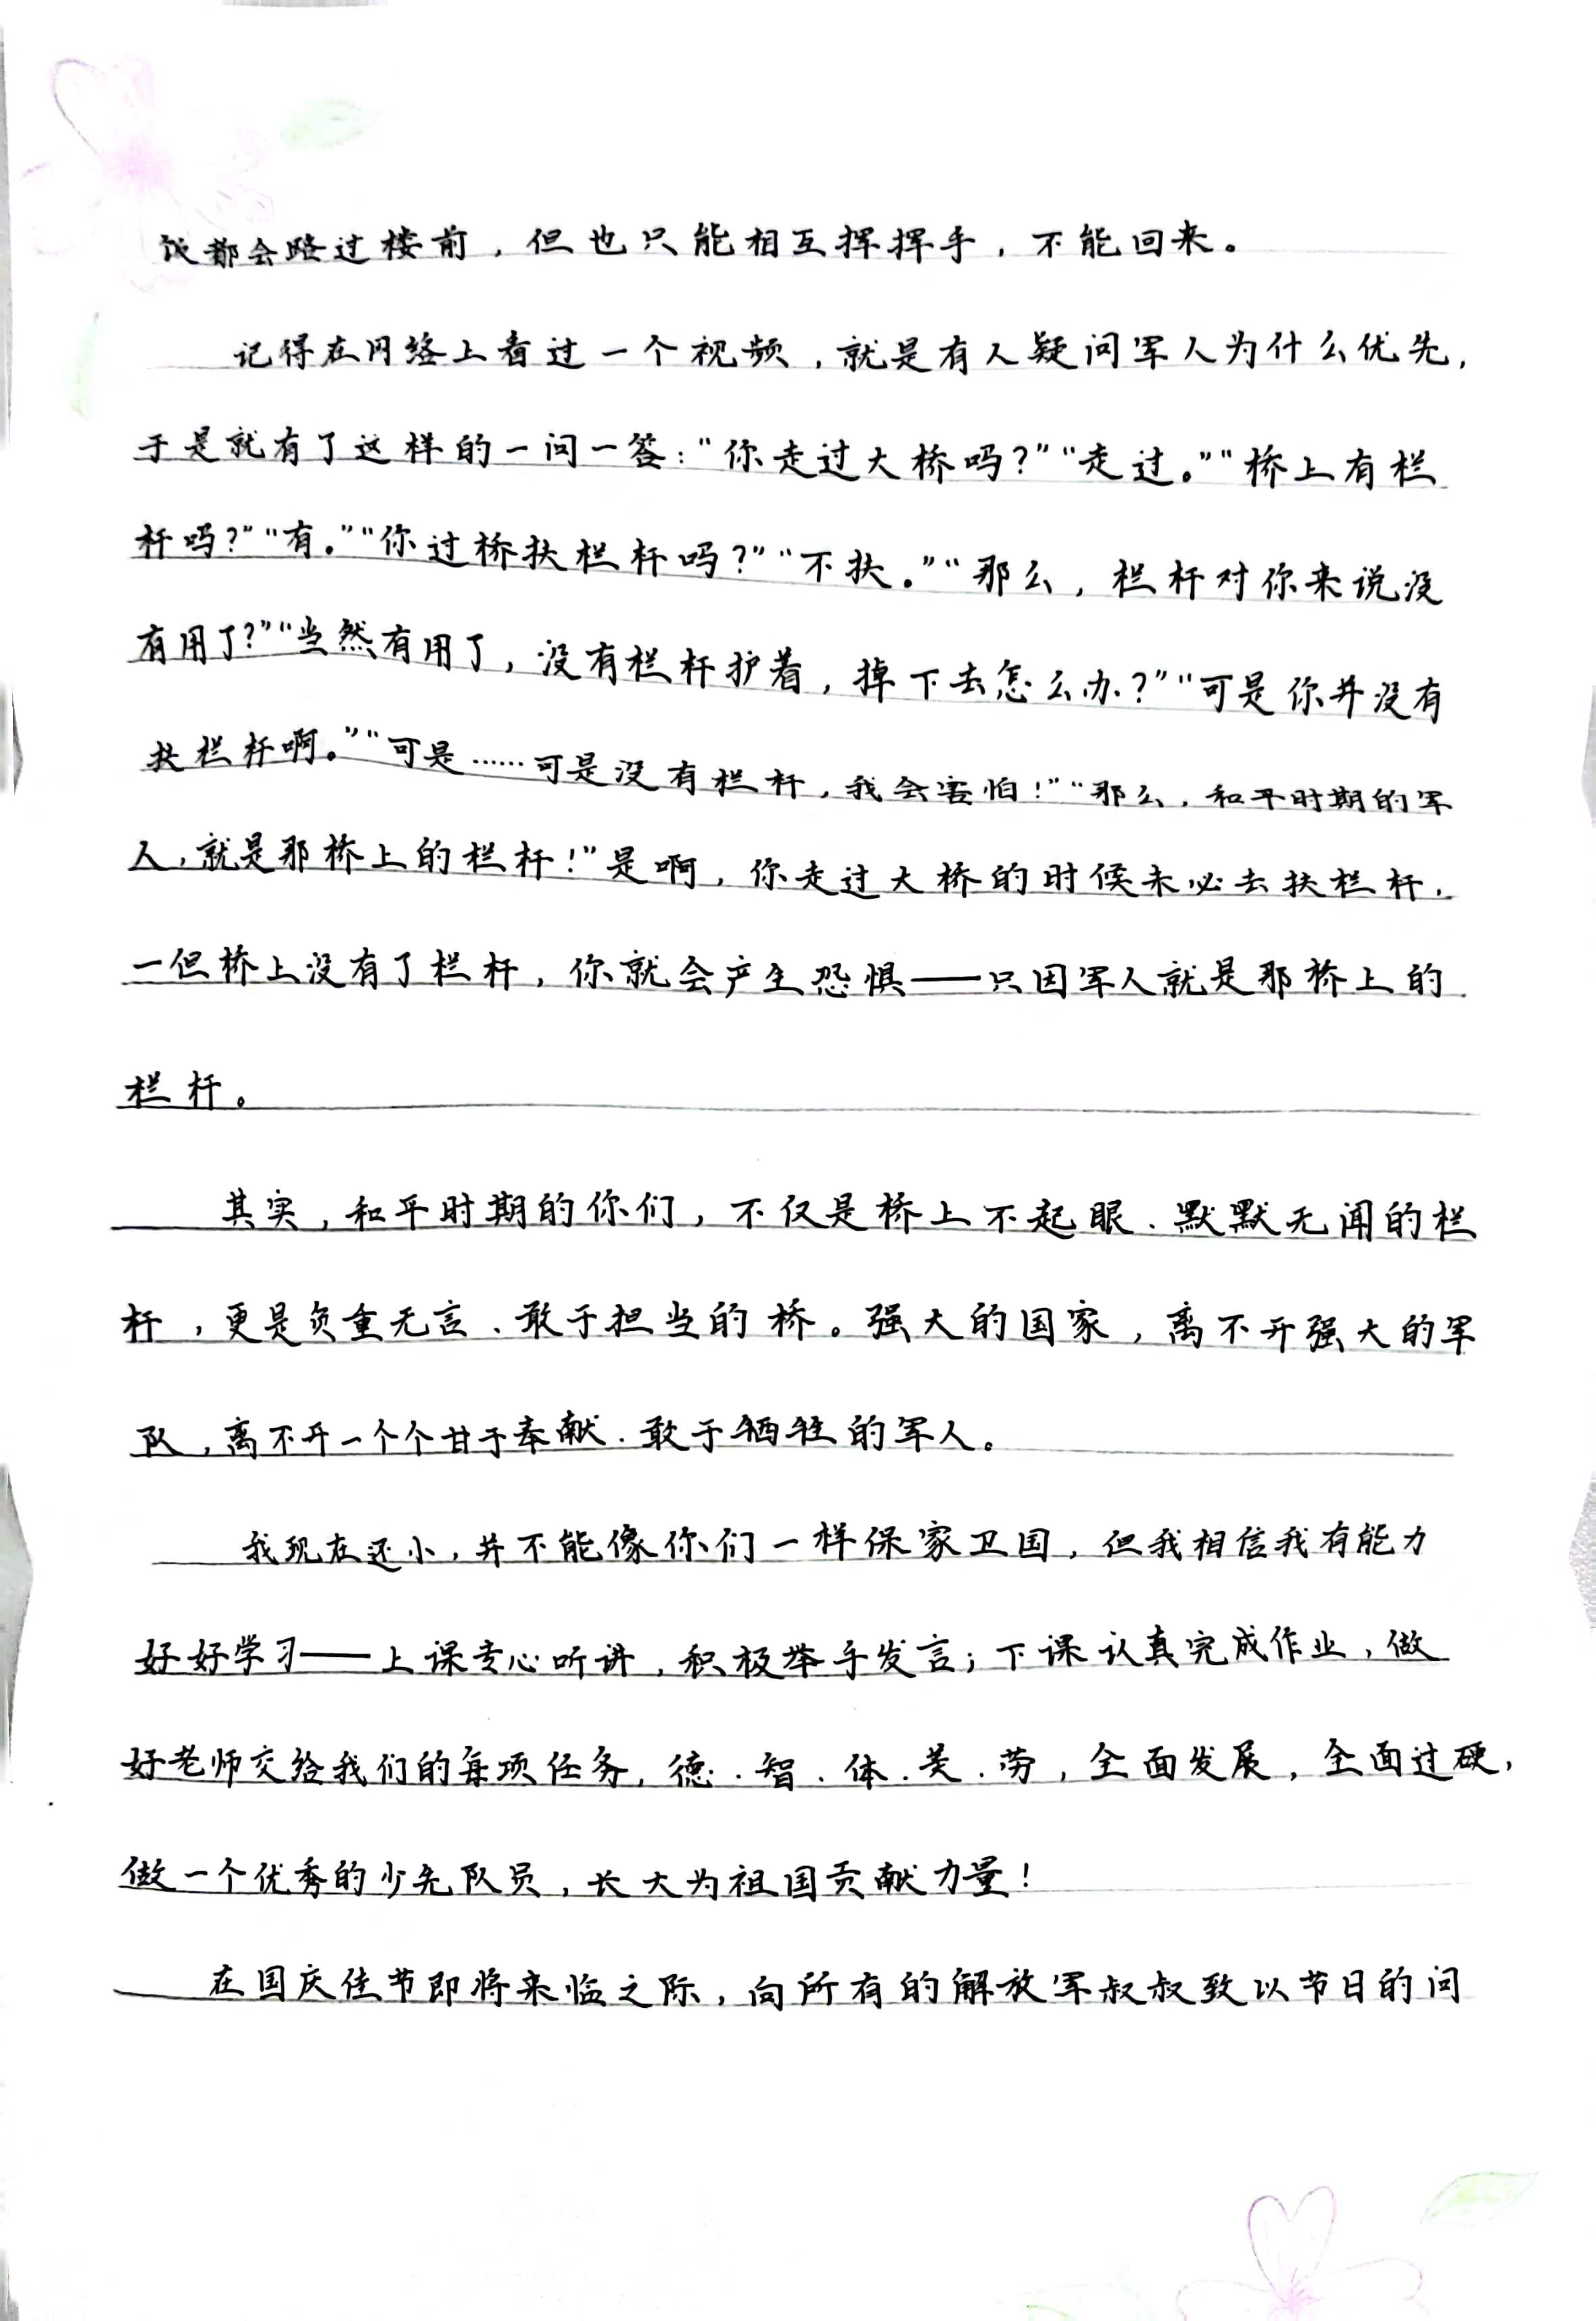 饭都会路过楼前，但也只能相互挥挥手，不能回来。
记得在网络上看过一个视频，就是有人疑问军人为什么优先，
于是就有了这样的一问一答：“你走过大桥吗？”“走过。”“桥上有栏
杆吗？”“有。”“你过桥扶栏杆吗？”“不扶。”“那么，栏杆对你来说没
有用了？”“当然有用了，没有栏杆护着，掉下去怎么办？”“可是你并没有
扶栏杆啊。”“可是……可是没有栏杆，我会害怕！”“那么，和平时期的军
人，就是那桥上的栏杆！”是啊，你走过大桥的时候未必去扶栏杆，
一但桥上没有了栏杆，你就会产生恐惧——只因军人就是那桥上的
栏杆。
其实，和平时期的你们，不仅是桥上不起眼、默默无闻的栏
杆，更是负重无言、敢于担当的桥。强大的国家，离不开强大的军
队，离不开一个个甘于奉献、敢于牺牲的军人。
我现在还小，并不能像你们一样保家卫国，但我相信我有能力
好好学习——上课专心听讲，积极举手发言；下课认真完成作业，做
好老师交给我们的每项任务，德、智、体、美、劳，全面发展，全面过硬，
做一个优秀的少先队员，长大为祖国贡献力量！
在国庆佳节即将来临之际，向所有的解放军叔叔致以节日的问